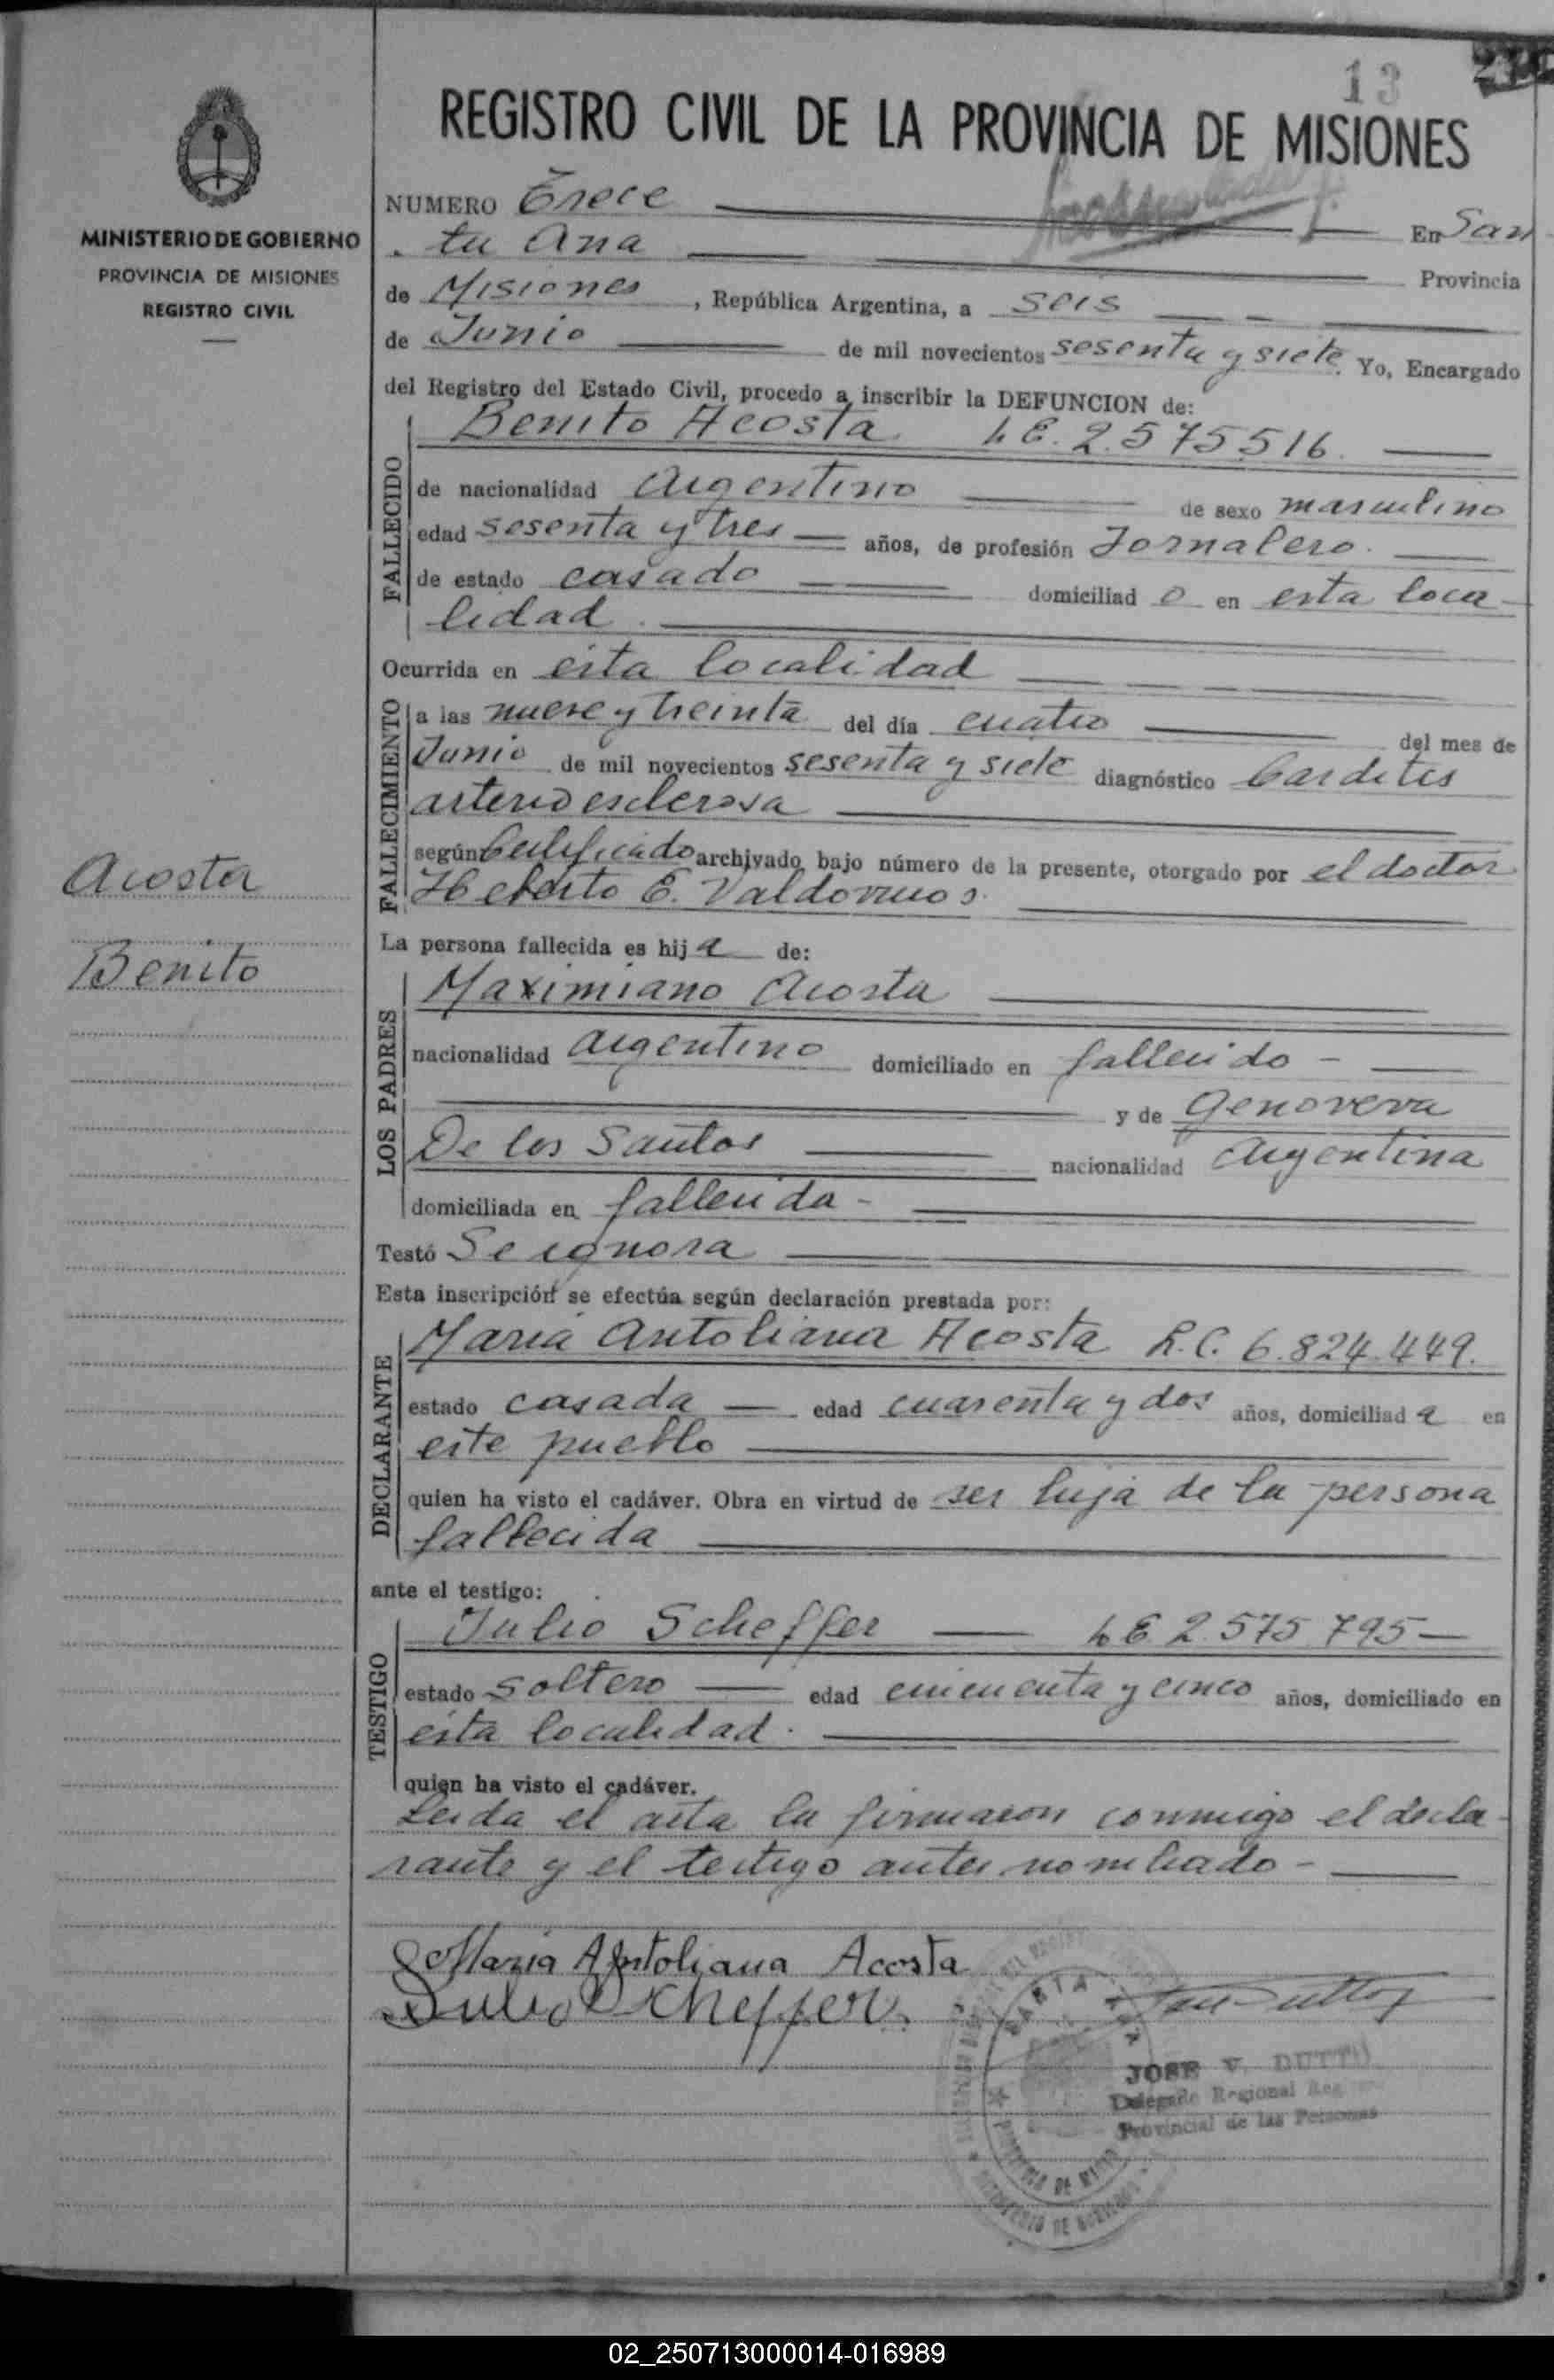 13
REGISTRO CIVIL DE LA PROVINCIA DE MISIONES
MINISTERIO DE GOBIERNO
PROVINCIA DE MISIONES
REGISTRO CIVIL
NUMERO Trece En San
ta Ana Provincia
de Misiones, República Argentina, a seis
de Junio de mil novecientos sesenta y siete. Yo, Encargado
del Registro del Estado Civil, procedo a inscribir la DEFUNCION de:
Benito Acosta L E. 2.575516.
FALLECIDO
de nacionalidad Argentino de sexo masculino
edad sesenta y tres años, de profesión Jornalero.
de estado casado domiciliado en esta loca
lidad.
Ocurrida en esta localidad
FALLECIMIENTO
a las nueve y treinta del día cuatro del mes de
Junio de mil novecientos sesenta y siete diagnóstico Carditis
arterioesclerosa
según Certificado archivado bajo número de la presente, otorgado por el doctor
Heberto E. Valdovinos.
Acosta
Benito
La persona fallecida es hija de:
LOS PADRES
Maximiano Acosta
nacionalidad Argentino domiciliado en fallecido -
y de Genoveva
De los Santos nacionalidad Argentina
domiciliada en fallecida -
Testó Se ignora
Esta inscripción se efectúa según declaración prestada por:
DECLARANTE
Maria Antoliana Acosta L.C. 6.824.449.
estado casada edad cuarenta y dos años, domiciliada en
este pueblo
quien ha visto el cadáver. Obra en virtud de ser hija de la persona
fallecida
ante el testigo:
TESTIGO
Julio Scheffer L E 2.575.795 -
estado soltero edad cincuenta y cinco años, domiciliado en
esta localidad.
quien ha visto el cadáver.
Leida el acta la firmaron conmigo el decla-
rante y el testigo antes nombrado -
Maria Antoliana Acosta
Julio Scheffer
SANTA ANA
JOSE V. DUTTO
Delegado Regional Reg
Provincial de las Personas
MINISTERIO DE GOBIERNO
02_250713000014-016989